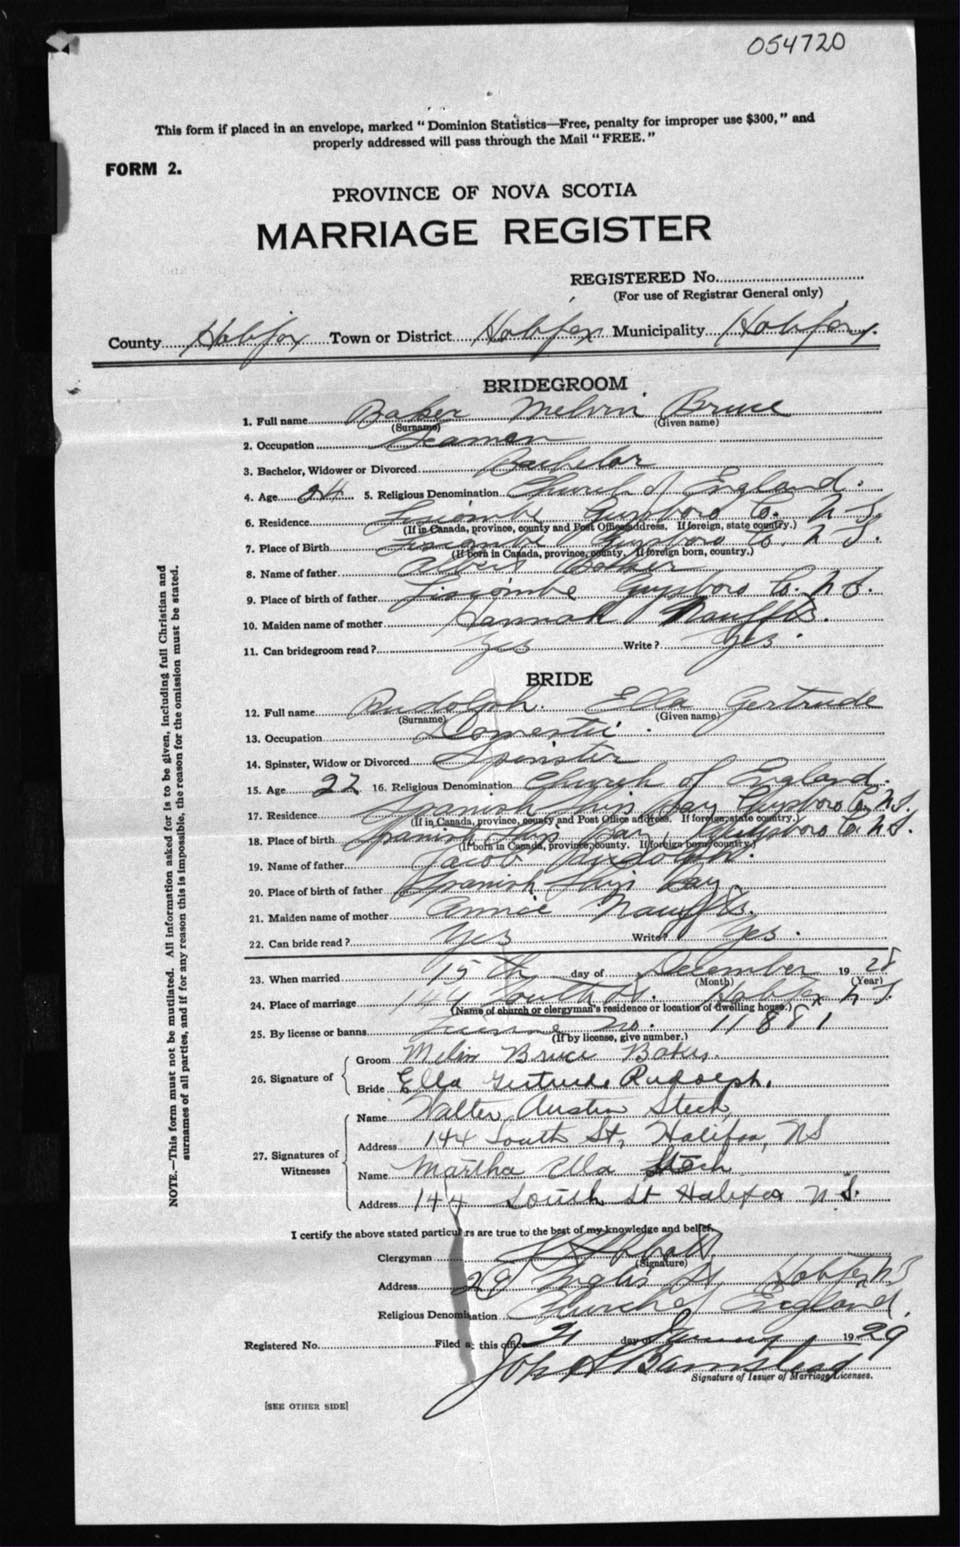 054720
This form if placed in an envelope, marked "Dominion Statistics—Free, penalty for improper use $300," and
properly addressed will pass through the Mail "FREE."
FORM 2.
PROVINCE OF NOVA SCOTIA
MARRIAGE REGISTER
REGISTERED No.
(For use of Registrar General only)
County Halifax Town or District Halifax Municipality Halifax.
BRIDEGROOM
1. Full name Baker Melvin Bruce
(Surname) (Given name)
2. Occupation Seaman
3. Bachelor, Widower or Divorced Bachelor
4. Age 24 5. Religious Denomination Church of England.
6. Residence Liscombe Guysboro Co. N S.
(If in Canada, province, county and Post Office address. If foreign, state country.)
7. Place of Birth Liscombe Guysboro Co. N S.
(If born in Canada, province, county. If foreign born, country.)
8. Name of father Albert Baker
9. Place of birth of father Liscombe Guysboro Co. N S.
10. Maiden name of mother Hannah Nauffts.
11. Can bridegroom read? Yes Write? Yes.
BRIDE
12. Full name Rudolph. Ella Gertrude
(Surname) (Given name)
13. Occupation Domestic.
14. Spinster, Widow or Divorced Spinster
15. Age 22 16. Religious Denomination Church of England.
17. Residence Spanish Ship Bay Guysboro Co. N.S.
(If in Canada, province, county and Post Office address. If foreign, state country.)
18. Place of birth Spanish Ship Bay, Guysboro Co. N.S.
(If born in Canada, province, county. If foreign born, country.)
19. Name of father Jacob Rudolph.
20. Place of birth of father Spanish Ship Bay.
21. Maiden name of mother Annie Nauffts.
22. Can bride read? Yes Write? Yes.
23. When married 15th day of December 1928
(Month) (Year)
24. Place of marriage 144 South St. Halifax N S.
(Name of church or clergyman's residence or location of dwelling house.)
25. By license or banns License No. 11881
(If by license, give number.)
26. Signature of
Groom Melvin Bruce Baker.
Bride Ella Gertrude Rudolph.
27. Signatures of Witnesses
Name Walter Austin Stech
Address 144 South St, Halifax, NS
Name Martha Ella Stech
Address 144 South St Halifax N S.
I certify the above stated particulars are true to the best of my knowledge and belief.
Clergyman
(Signature)
Address 29 Inglis St Halifax N S
Religious Denomination Church of England.
Registered No. Filed at this office 2 day of January 1929
John A Barnstead
Signature of Issuer of Marriage Licenses.
[SEE OTHER SIDE]
NOTE.—This form must not be mutilated. All information asked for is to be given, including full Christian and
surnames of all parties, and if for any reason this is impossible, the reason for the omission must be stated.